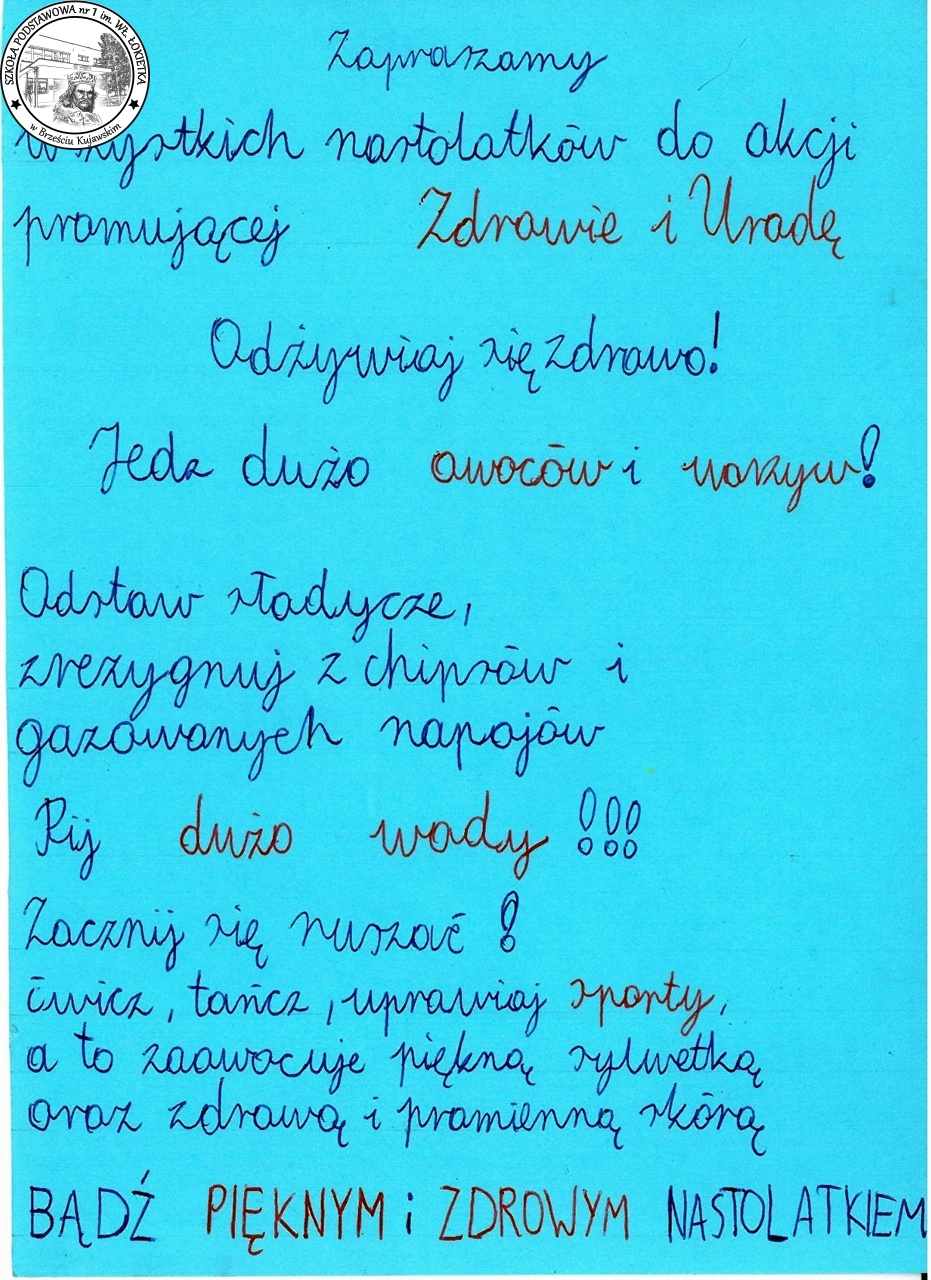 SZKOŁA PODSTAWOWA nr 1 im. WŁ. ŁOKIETKA
w Brześciu Kujawskim
Zapraszamy
wszystkich nastolatków do akcji
promującej Zdrowie i Urodę
Odżywiaj się zdrowo!
Jedz dużo owoców i warzyw!
Odstaw słodycze,
zrezygnuj z chipsów i
gazowanych napojów
Pij dużo wody !!!
Zacznij się ruszać !
ćwicz, tańcz, uprawiaj sporty,
a to zaowocuje piękną sylwetką
oraz zdrową i promienną skórą
BĄDŹ PIĘKNYM i ZDROWYM NASTOLATKIEM